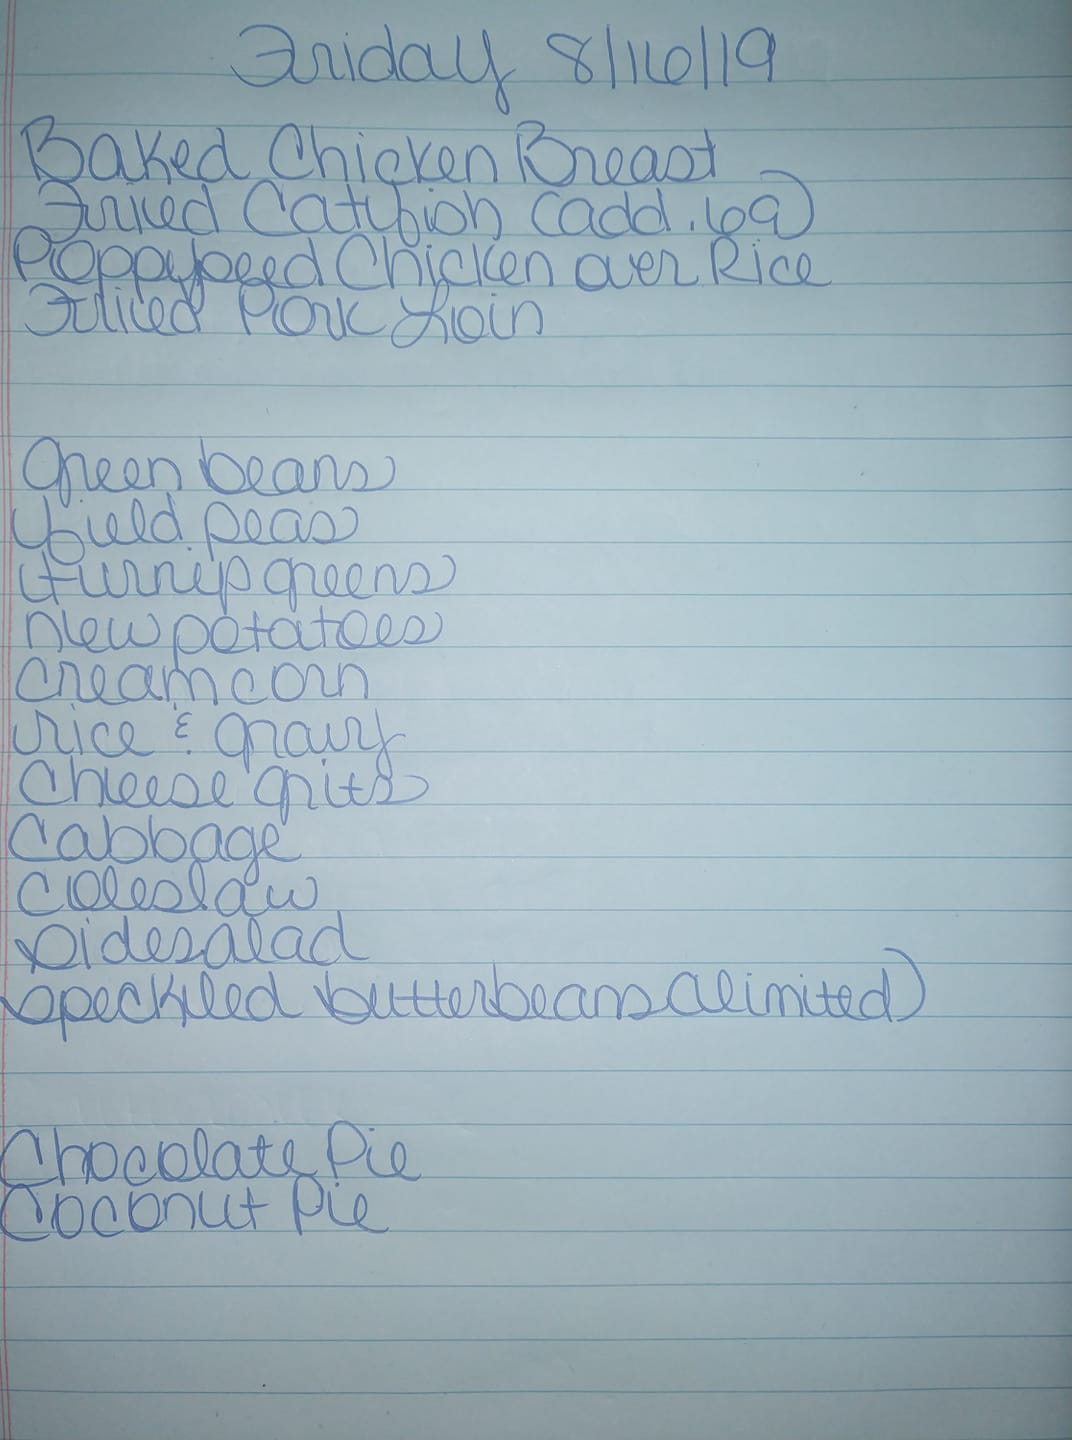 Friday 8/16/19
Baked Chicken Breast
Fried Catfish (add .69)
Poppyseed Chicken over Rice
Fried Pork Loin
Green beans
field peas
turnip greens
new potatoes
cream corn
rice & gravy
cheese grits
cabbage
coleslaw
side salad
speckled butterbeans (limited)
Chocolate Pie
Coconut Pie